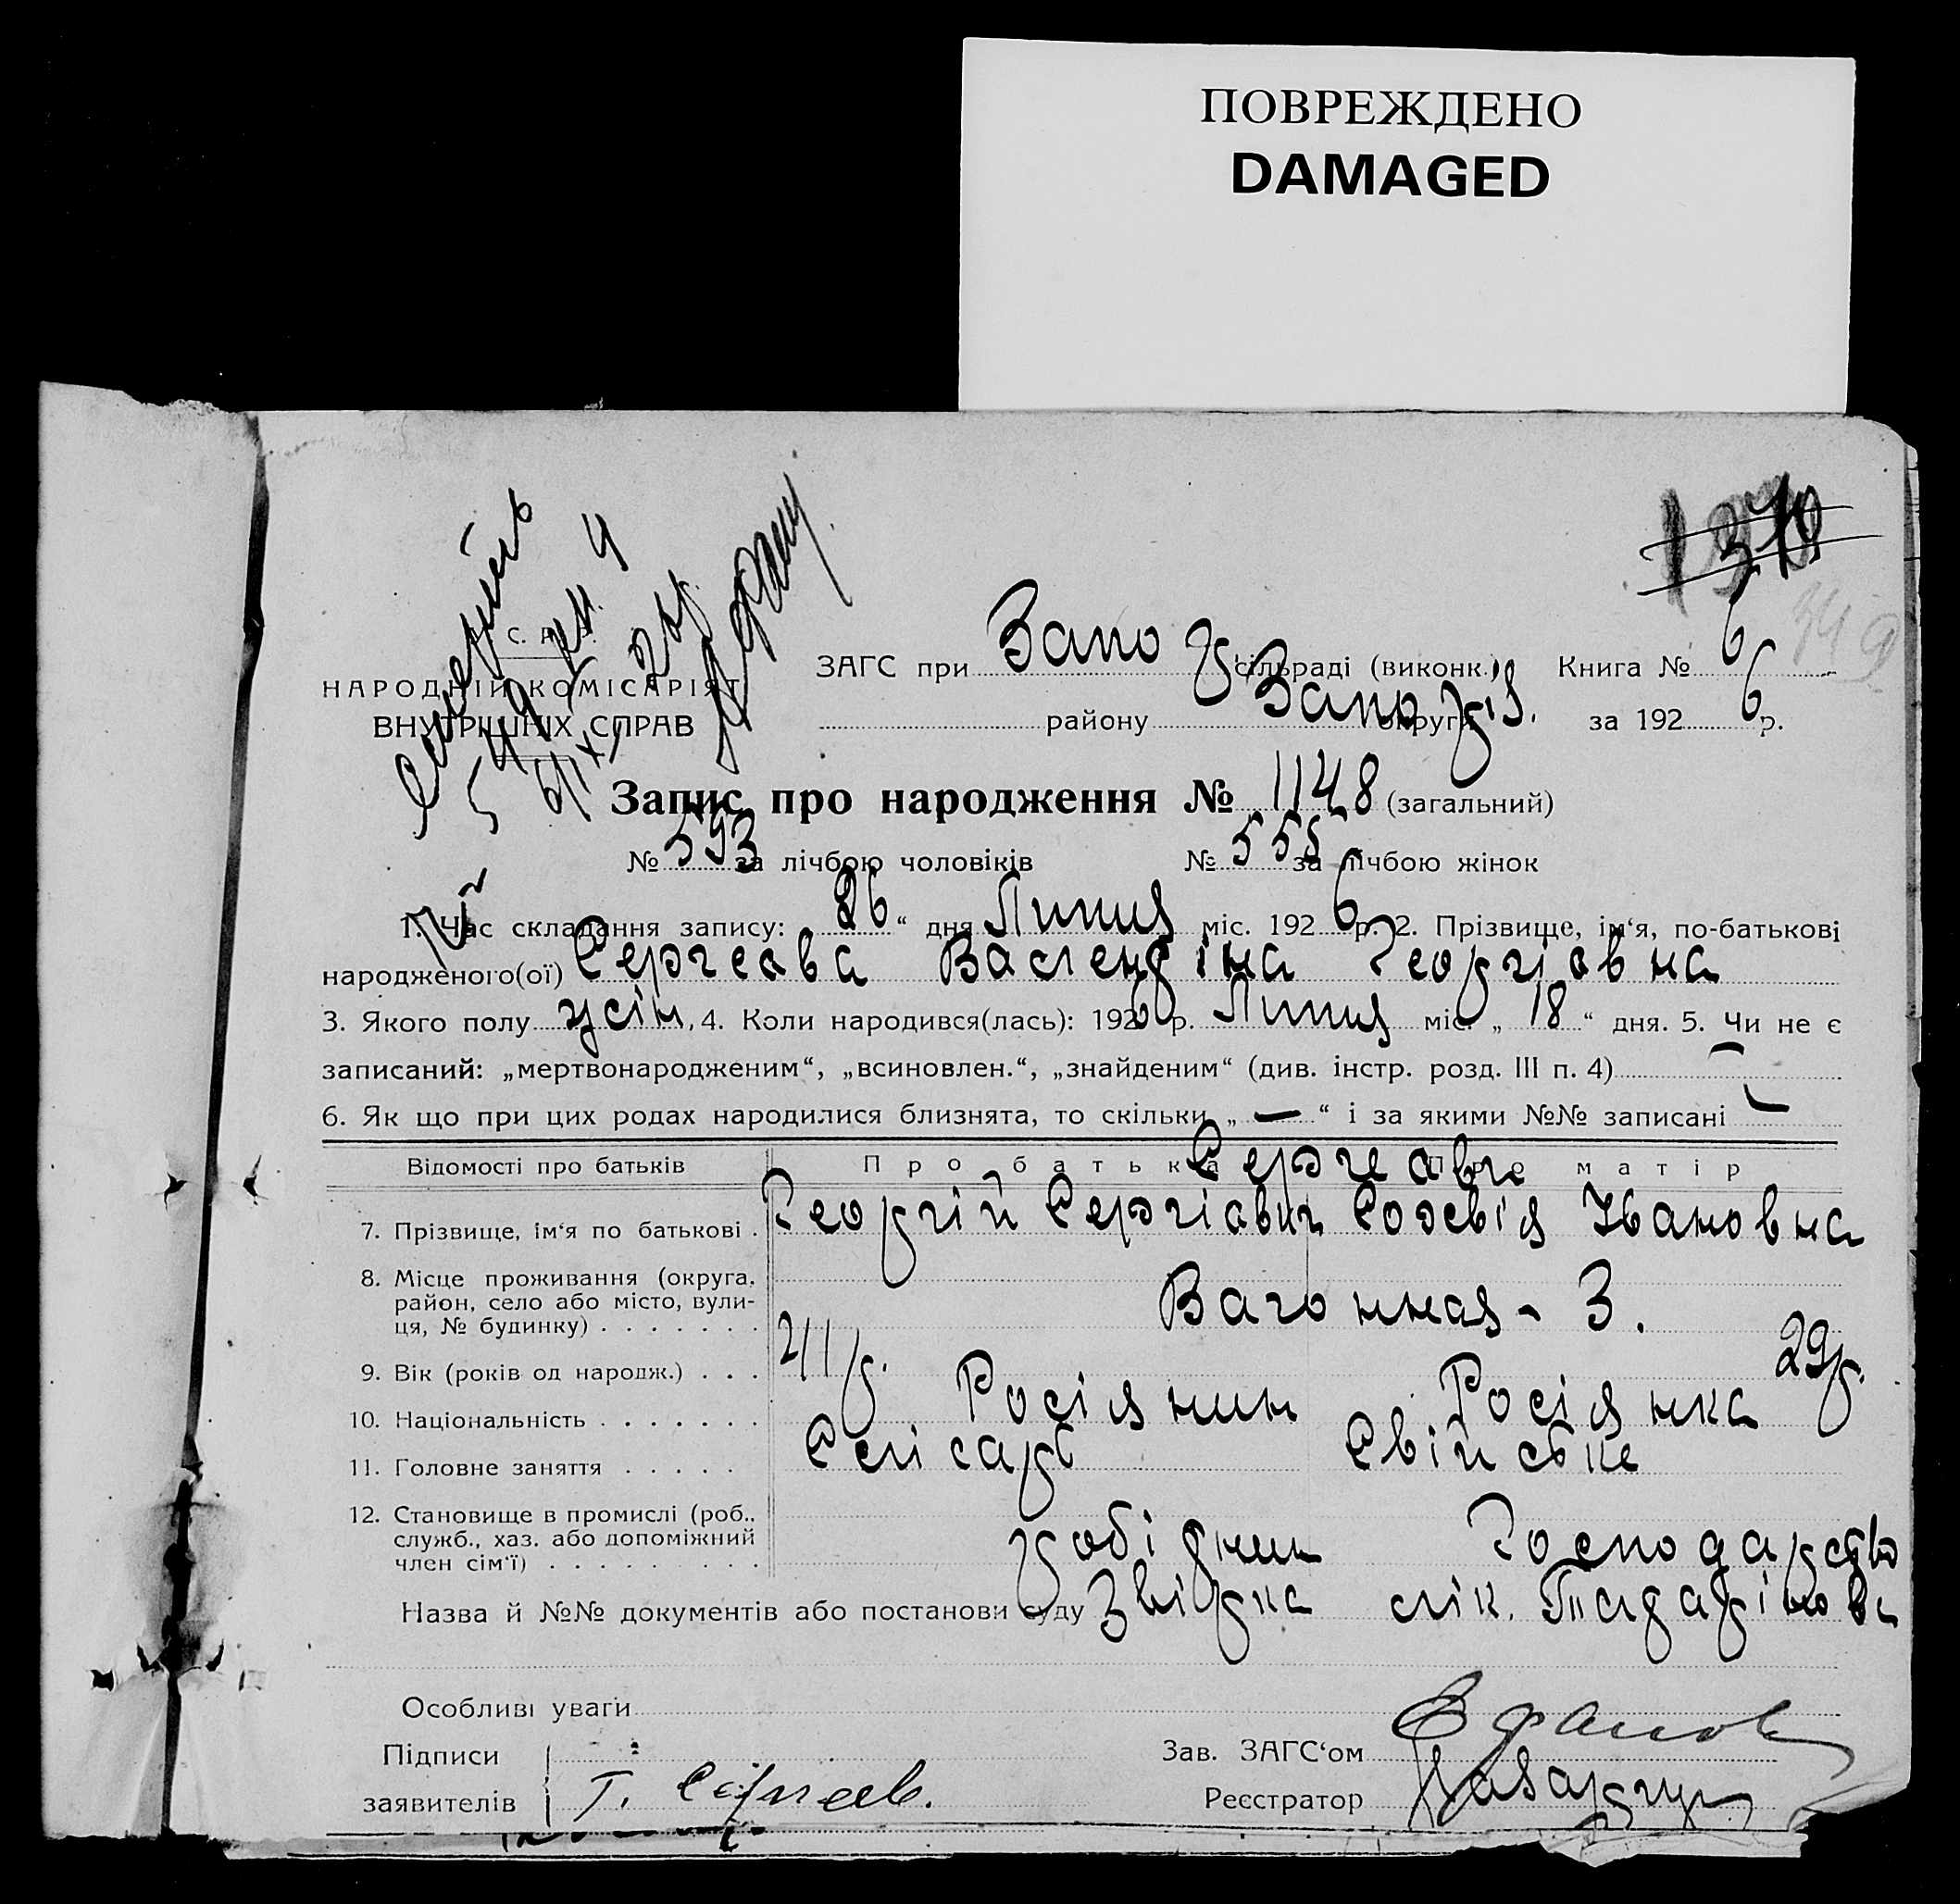 ПОВРЕЖДЕНО
DAMAGED
Смерть
НАРОДНІЙ КОМІСАРІЯТ
ВНУТРІШНІХ СПРАВ
ЗАГС при Запо сільраді (виконк.) Книга № 6
району Запоріз. округи за 1926 р.
Запис про народження № 1148 (загальний)
№ 593 за лічбою чоловіків № 555 за лічбою жінок
1. Час складання запису: 26 “ дня Липня міс. 1926 р. 2. Прізвище, ім‘я, по-батькові
народженого(ої) Сергеєва Валендіна Георгієвна
3. Якого полу жін, 4. Коли народився(лась): 1926 р. Липня міс. „ 18 “ дня. 5. Чи не є
записаний: „мертвонародженим“, „всиновлен.“, „знайденим“ (див. інстр. розд. III п. 4) —
6. Як що при цих родах народилися близнята, то скільки „ — “ і за якими №№ записані —
Відомості про батьків Про батька Про матір
Сергеєви
7. Прізвище, ім‘я по батькові . Георгій Сергієвич Софвія Івановна
8. Місце проживання (округа,
район, село або місто, вули-
ця, № будинку) . . . . . . . Вагонная - 3.
9. Вік (років од народж.) . . . р. 29 р.
10. Національність . . . . . . . Росіянин Росіянка
11. Головне заняття . . . . . Слісарь Свійське
12. Становище в промислі (роб.,
служб., хаз. або допоміжний
член сім‘ї) . . . . . . . . . робідник Господарство
Назва й №№ документів або постанови суду Звідка лік.
Особливі уваги
Підписи
заявителів Г. Сергеев.
Зав. ЗАГС‘ом
Реєстратор